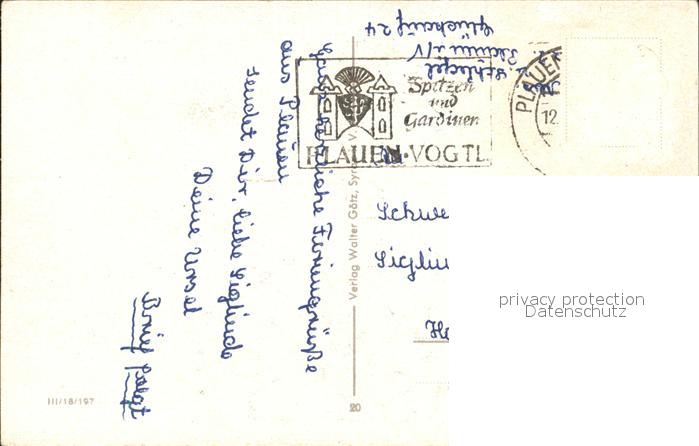 Ganz herzliche Feriengrüße
aus Plauen
sendet Dir, liebe Sieglinde
Deine Ursel
Brief folgt
Schlegel
Plauen i/V
Glückauf 24
Spitzen
und
Gardinen
PLAUEN·VOGTL
PLAUEN
12.
Verlag Walter Götz, Syr
V.
Schwe
Sieglin
He
privacy protection
Datenschutz
III/18/197
20